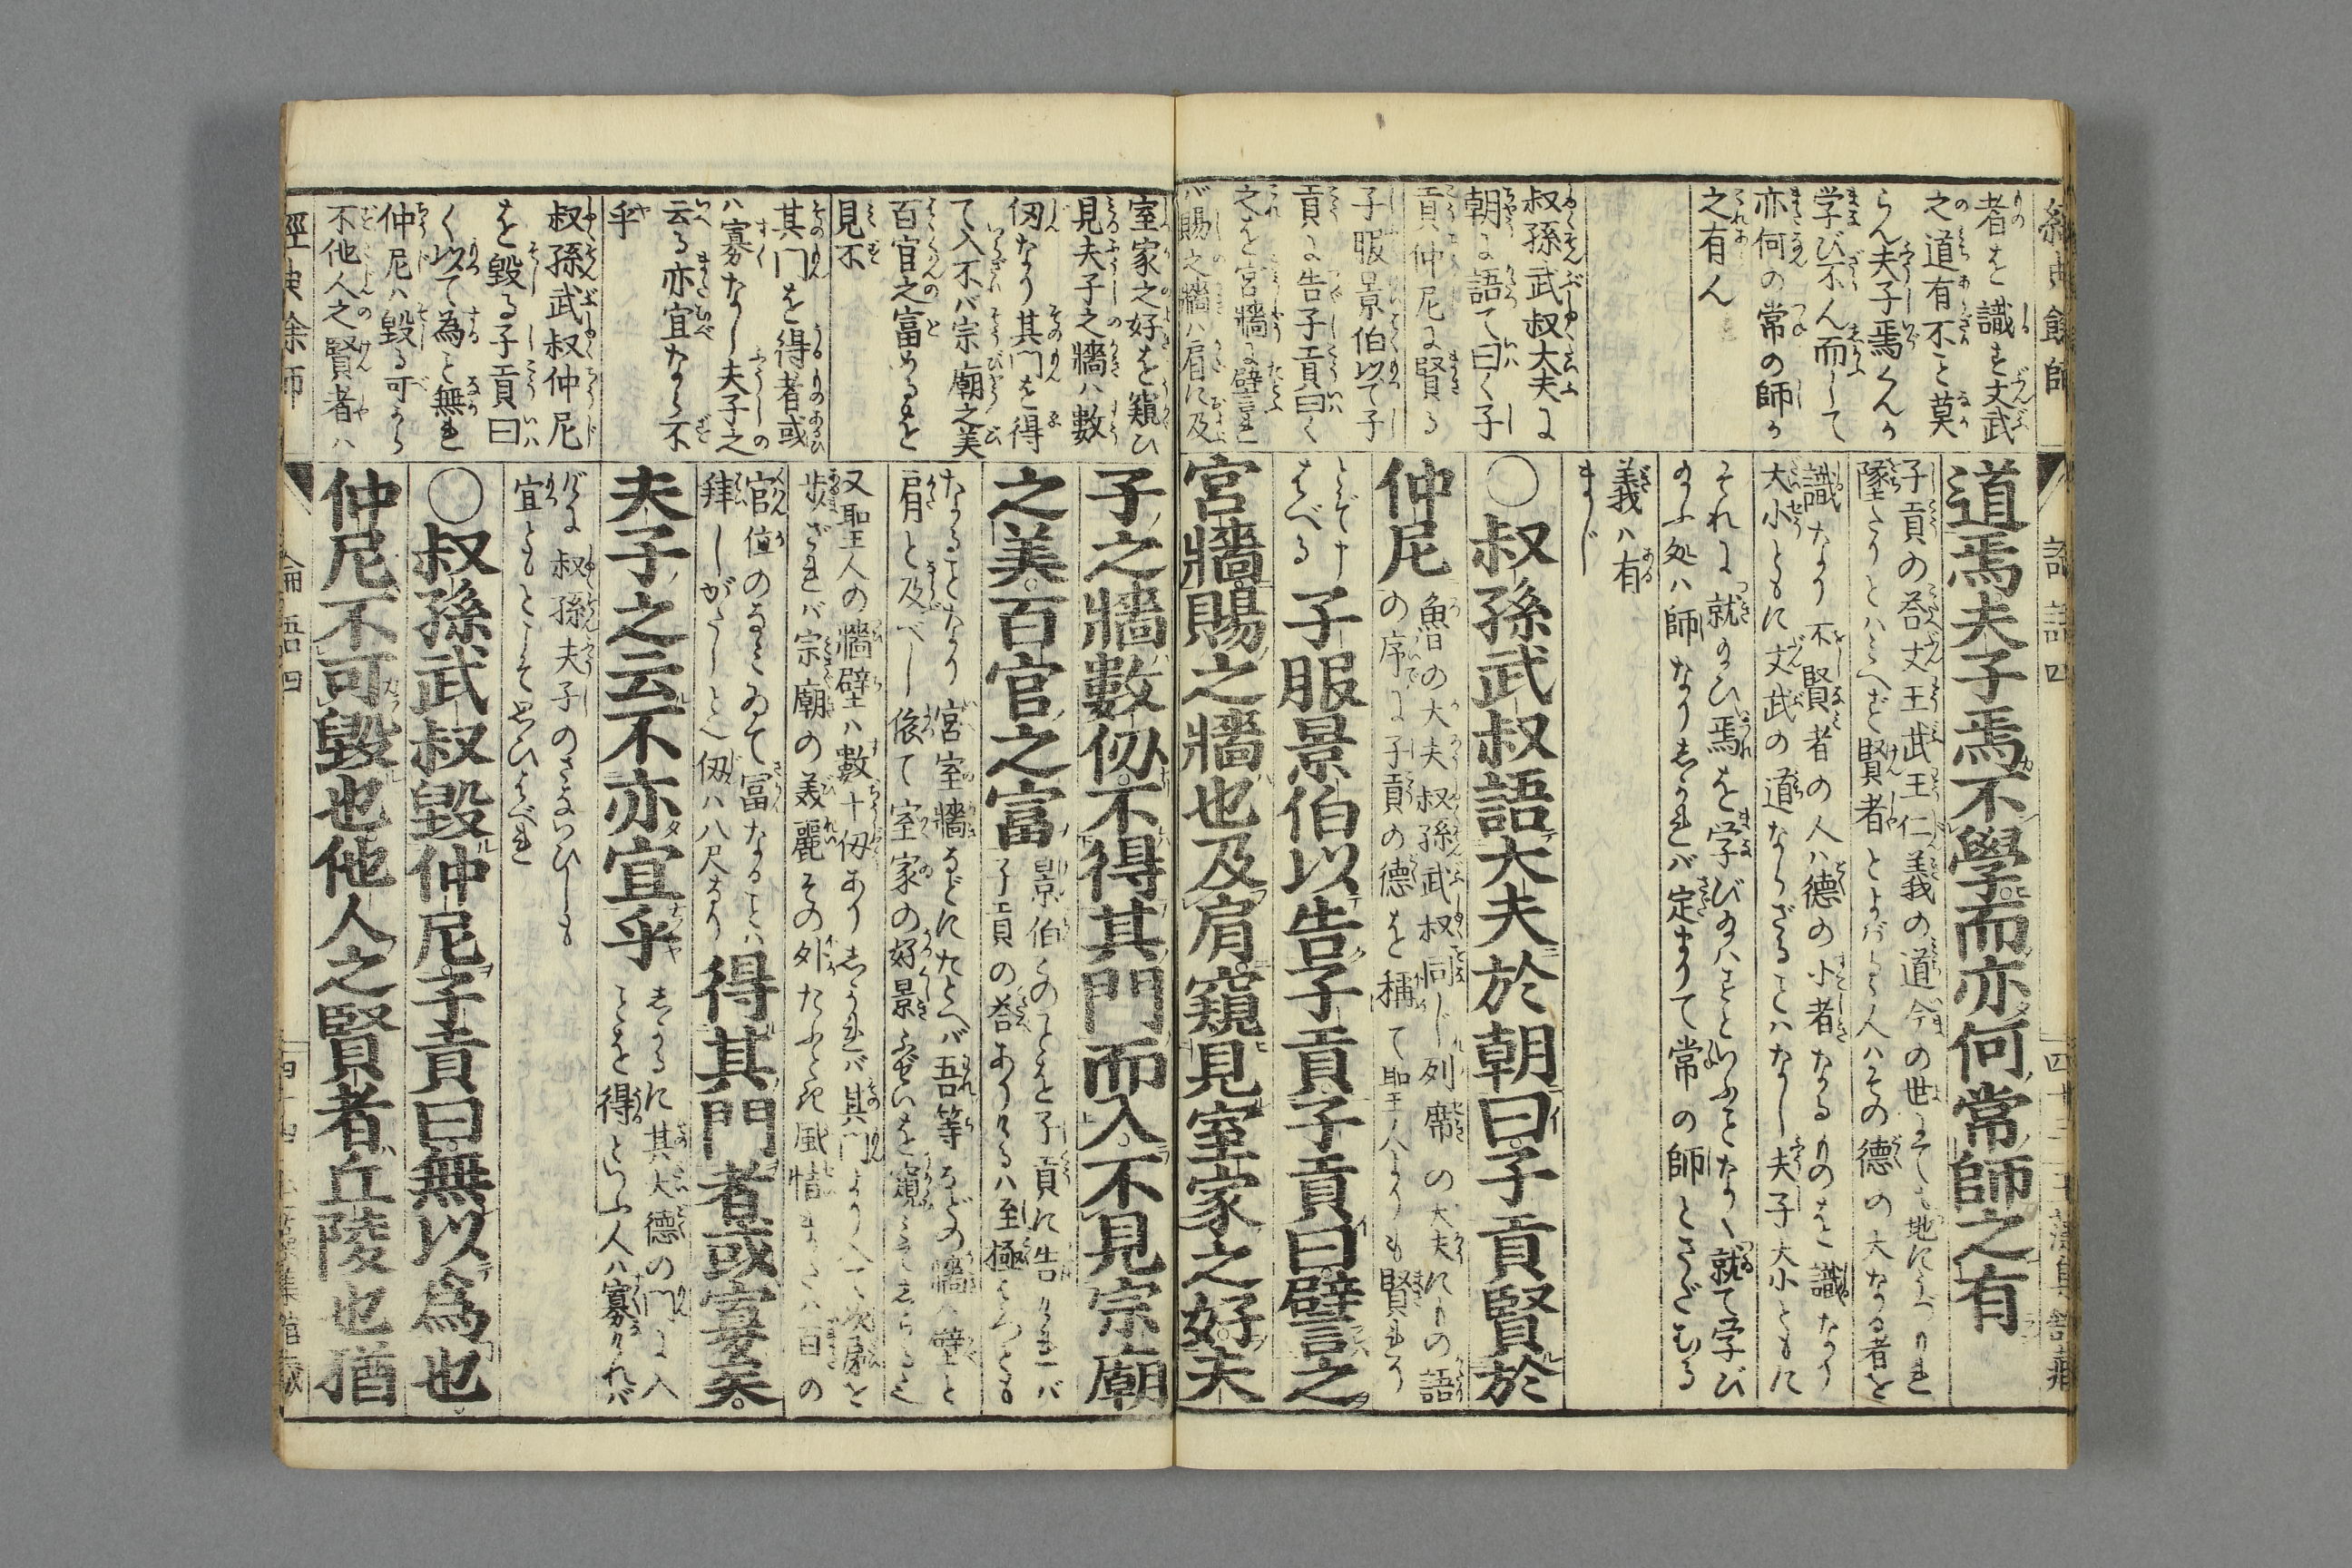 者を識す文武
之道有不と莫
らん夫子焉くんか
学び不ん而して
亦何の常の師か
之有ん
叔孫武叔大夫に
朝に語て曰く子
貢仲尼に賢る
子服景伯以て子
貢に告子貢曰く
之を宮牆に譬れ
バ賜之牆ハ肩に及
道焉夫子焉不學而亦何常師之有
子貢の荅文王武王仁義の道今の世
墜たりとハミへず賢者とよバるゝ人ハその德の大なる者を
識なり不賢者の人ハ德の小者なるものを識なり
大小ともに文武の道ならざることハなし夫子大小ともに
それに就給ひ焉を学び給ハざらんといふことなく就て学び
給ふ処ハ師なりしかれバ定まりて常の師とさだむる
義ハ有
まじ
〇叔孫武叔語大夫於朝曰子貢賢於
仲尼
魯の大夫叔孫武叔同じ列席の大夫にもの語
の序に子貢の德を稱て聖人よりも賢れり
とぞ申
はべる
子服景伯以告子貢子貢曰譬之
宮牆賜之牆也及肩窺見室家之好夫
室家之好を窺ひ
見夫子之牆ハ數
仭なり其門を得
て入不バ宗廟之美
百官之富めるを
見不
其門を得者或
ハ寡なし夫子之
云る亦宜なら不
乎
叔孫武叔仲尼
を毀る子貢曰
く以て為と無れ
仲尼ハ毀る可から
不他人之賢者ハ
子之牆數仭不得其門而入不見宗廟
之美百官之富
景伯このことを子貢に告けれバ
子貢の荅ありけるハ至極
なることなり宮室牆などにたとへバ吾等などの牆ハ壁と
肩と及べし依て室家の好景ふぜいを窺
又聖王人の牆壁ハ數十仭ありしかれバ其門より入て次㐧を
歩ざれバ宗廟の美麗その外たふとき風情または百の
官位のなミゐて冨なることハ
拜しがたしとこ仭ハ八尺なり
得其門者或寡矣
夫子之云不亦宜乎
しかるに其大德の門に入
ことを得といふ人ハ寡けれバ
げに叔孫夫子のさないひしも
宜ともとこそ思ひはべれ
〇叔孫武叔毀仲尼子貢曰無以爲也
仲尼不可毀也他人之賢者丘陵也猶
論語四